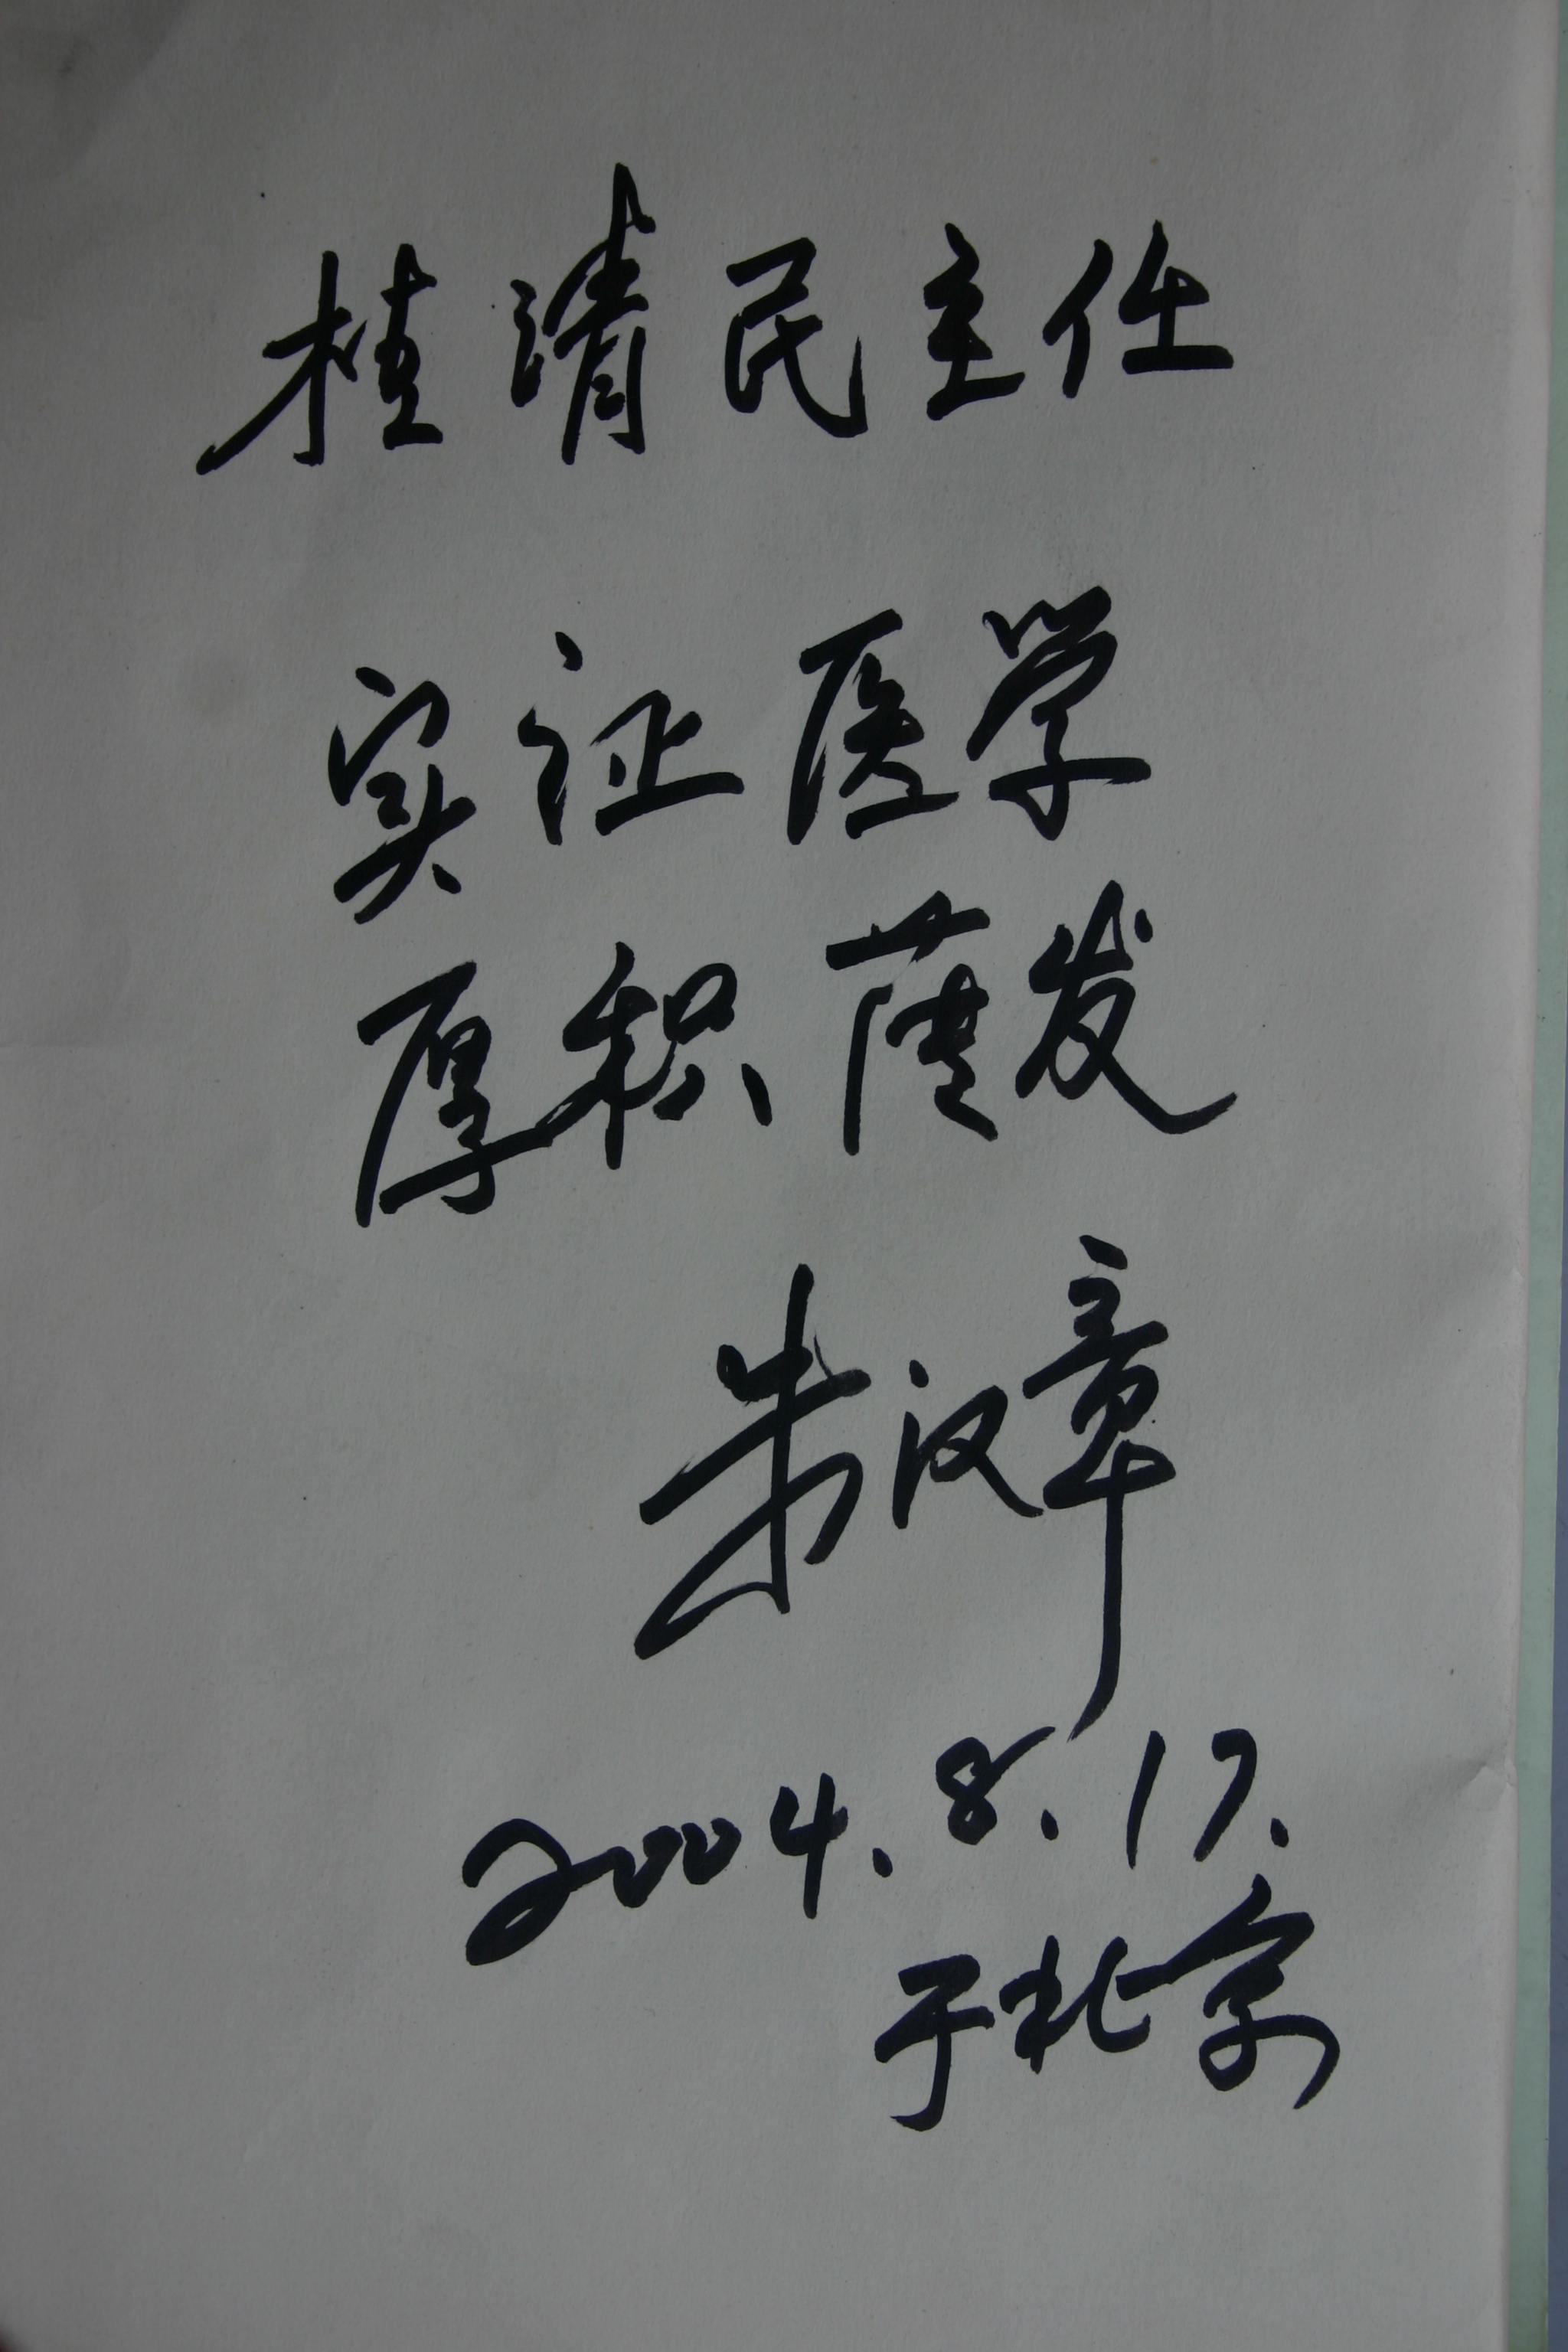 桂清民主任
实证医学
厚积薄发
朱汉章
2004.8.17.
于北京